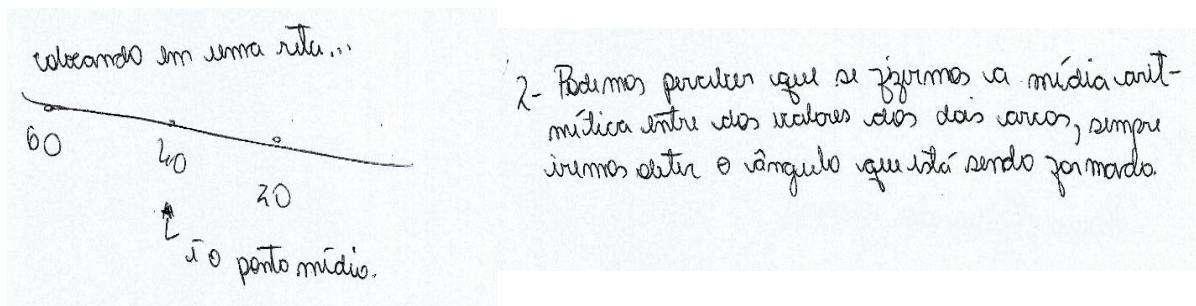 colocando em uma reta...
60
40
20
é o ponto médio.
2- Podemos perceber que se fizermos a média arit-
mética entre dos valores dos dois arcos, sempre
iremos obter o ângulo que está sendo formado.